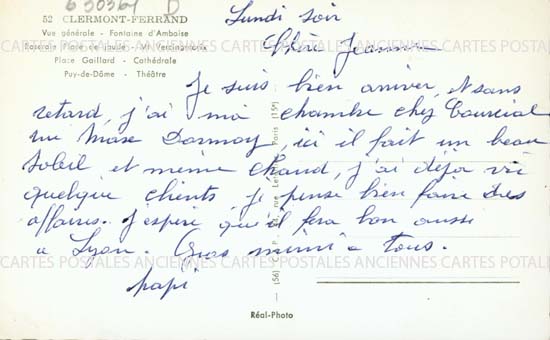 630361 D
52 CLERMONT-FERRAND
Vue générale - Fontaine d'Amboise
Place de Jaude - Mt Vercingétorix
Place Gaillard - Cathédrale
Puy-de-Dôme - Théâtre
Lundi soir
Chère Jeannine
Je suis bien arriver, et sans
retard, j'ai ma chambre chez
rue Marx Dormoy, ici il fait un beau
soleil et même chaud, j'ai déjà vu
quelque clients, je pense bien faire des
affaires. J'espère qu'il fera bon aussi
a Lyon. Gros mimi a tous.
papi
(56) C. A. P., rue Paris (15e)
CARTES POSTALES ANCIENNES CARTES POSTALES ANCIENNES CARTES POSTALES
Réal-Photo